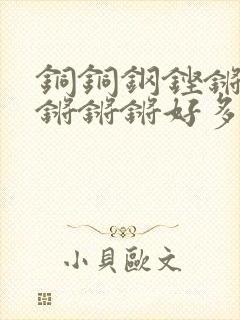 銅銅鋼鏗鏘
鏘鏘鏘好多
小貝歐文